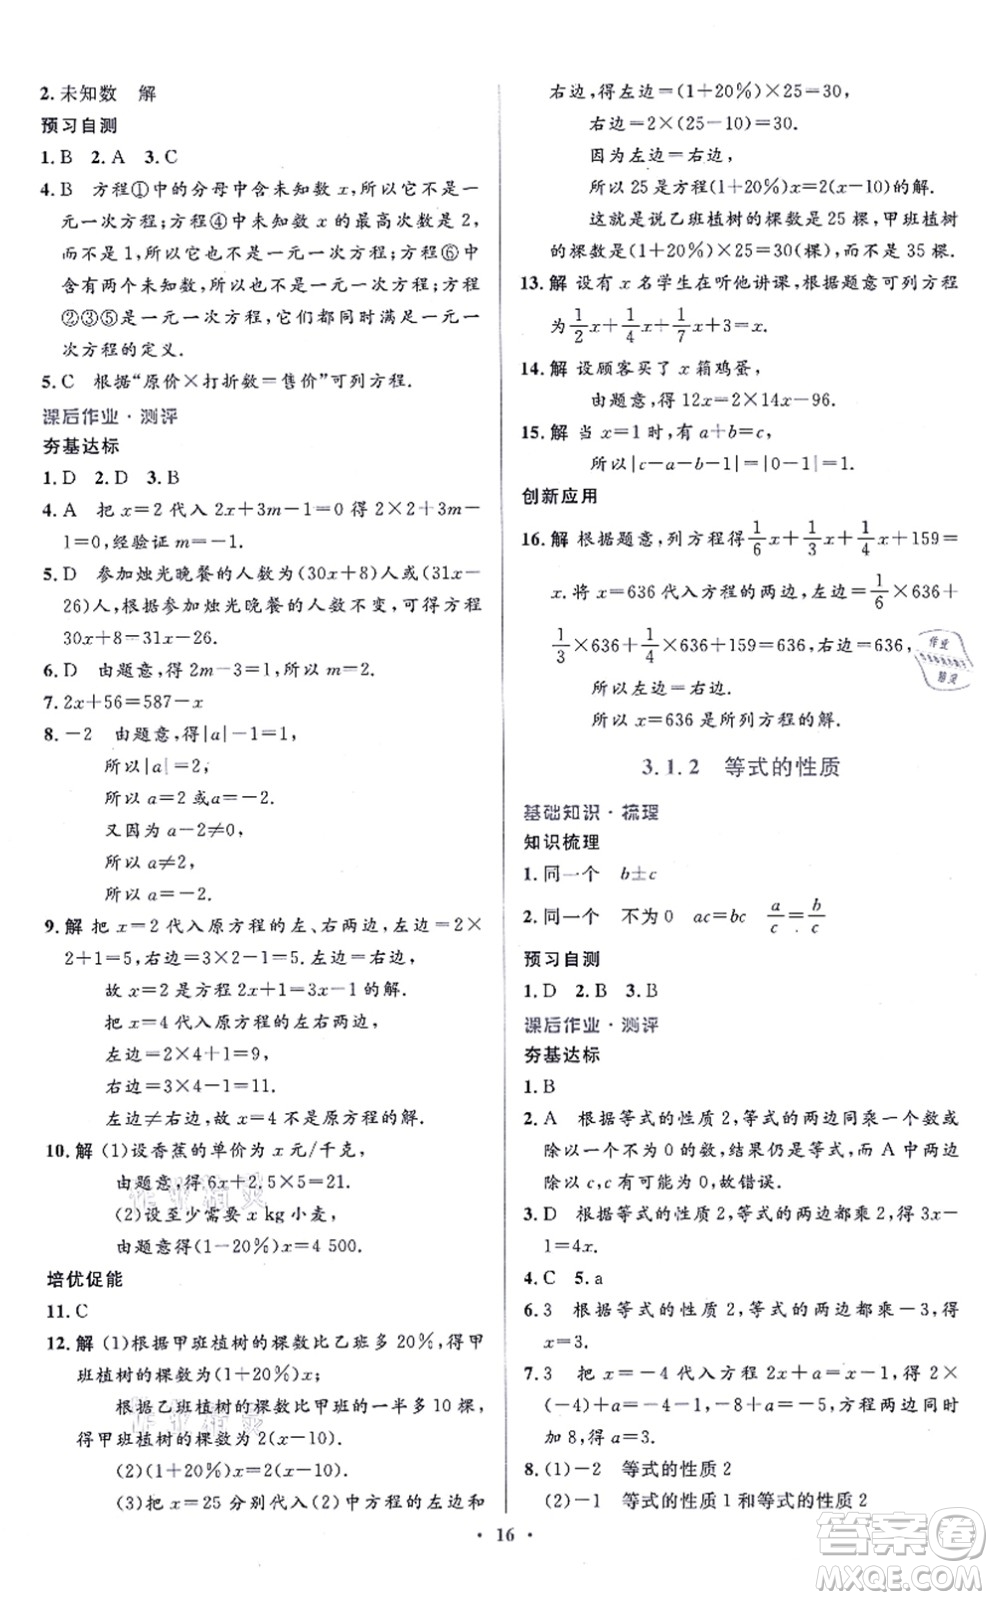 2. 未知数　解
预习自测
1. B　2. A　3. C
4. B　方程①中的分母中含未知数 x,所以它不是一
元一次方程;方程④中未知数 x 的最高次数是 2,
而不是 1,所以它不是一元一次方程;方程⑥中
含有两个未知数,所以它不是一元一次方程;方程
②③⑤是一元一次方程,它们都同时满足一元一
次方程的定义.
5. C　根据“原价×打折数=售价”可列方程.
课后作业·测评
夯基达标
1. D　2. D　3. B
4. A　把 x=2 代入 2x+3m-1=0 得 2×2+3m-
1=0,经验证 m=-1.
5. D　参加烛光晚餐的人数为(30x+8)人或(31x-
26)人,根据参加烛光晚餐的人数不变,可得方程
30x+8=31x-26.
6. D　由题意,得 2m-3=1.
7. 2x+56=587-x
8. -2　由题意,得|a|-1=1,
所以|a|=2,
所以 a=2 或 a=-2.
又因为 a-2≠0,
所以 a≠2,
所以 a=-2.
9. 解 把 x=2 代入原方程的左、右两边,左边=2×
2+1=5,右边=3×2-1=5.左边=右边,
故 x=2 是方程 2x+1=3x-1 的解.
把 x=4 代入原方程的左右两边,
左边=2×4+1=9,
右边=3×4-1=11.
左边≠右边,故 x=4 不是原方程的解.
10. 解 (1)设香蕉的单价为 x 元/千克,
由题意,得 6x+2.5×5=21.
(2)设至少需要 x kg 小麦,
由题意得(1-20%)x=4 500.
培优促能
11. C
12. 解 (1)根据甲班植树的棵数比乙班多 20%,得甲
班植树的棵数为(1+20%)x;
根据乙班植树的棵数比甲班的一半多 10 棵,
得甲班植树的棵数为 2(x-10).
(2)(1+20%)x=2(x-10).
(3)把 x=25 分别代入(2)中方程的左边和
右边,得左边=(1+20%)×25=30,
右边=2×(25-10)=30.
因为左边=右边,
所以 25 是方程(1+20%)x=2(x-10)的解.
这就是说乙班植树的棵数是 25 棵,甲班植树
的棵数是(1+20%)×25=30(棵),而不是 35 棵.
13. 解 设有 x 名学生在听他讲课,根据题意可列方程
为 1/2x+1/4x+1/7x+3=x.
14. 解 设顾客买了 x 箱鸡蛋,
由题意,得 12x=2×14x-96.
15. 解 当 x=1 时,有 a+b=c,
所以|c-a-b-1|=|0-1|=1.
创新应用
16. 解 根据题意,列方程得 1/6x+1/3x+1/4x+159=
x.将 x=636 代入方程的两边,左边=1/6×636+
1/3×636+1/4×636+159=636,右边=636,
所以左边=右边.
所以 x=636 是所列方程的解.
3.1.2　等式的性质
基础知识·梳理
知识梳理
1. 同一个　b±c
2. 同一个　不为 0　ac=bc　a/c=b/c
预习自测
1. D　2. B　3. B
课后作业·测评
夯基达标
1. B
2. A　根据等式的性质 2,等式的两边同乘一个数或
除以一个不为 0 的数,结果仍是等式,而 A 中两边
除以 c,c 有可能为 0,故错误.
3. D　根据等式的性质 2,等式的两边都乘 2,得 3x-
1=4x.
4. C　5. a
6. 3　根据等式的性质 2,等式的两边都乘-3,得
x=3.
7. 3　把 x=-4 代入方程 2x+a=x-1,得 2×
(-4)+a=-4-1,-8+a=-5,方程两边同时
加 8,得 a=3.
8. (1)-2　等式的性质 2
(2)-1　等式的性质 1 和等式的性质 2
· 16 ·
作业精灵
作业精灵
作业
精灵
答案卷
MXQE.COM